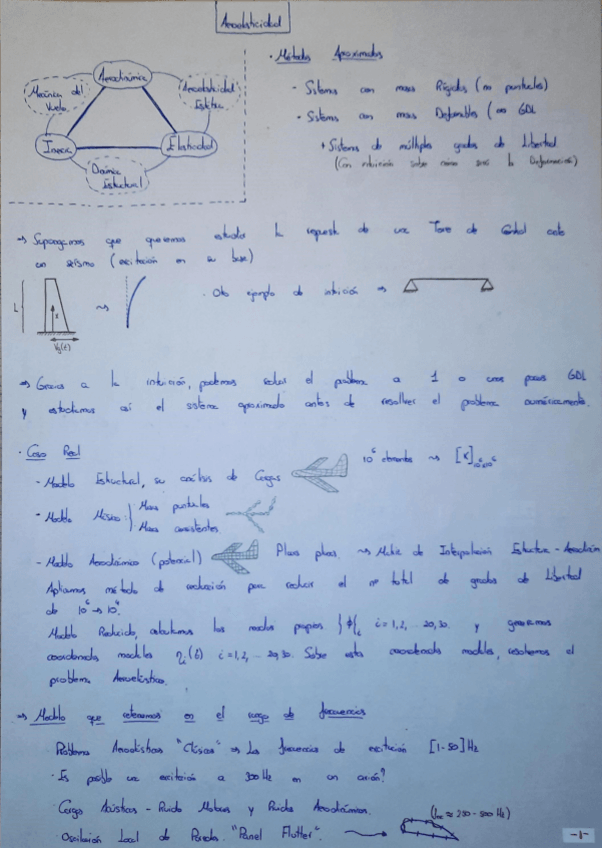 Aeroelasticidad
Aerodinámica
Mecánica del
Vuelo
Aeroelasticidad
Estática
Inercia
Elasticidad
Dinámica
Estructural
· Métodos Aproximados
- Sistemas con masas Rígidas (no puntuales)
- Sistemas con masas Deformables (∞ GDL
+ Sistemas de múltiples grados de Libertad
(Con intuición sobre cómo será la Deformación)
⇒ Supongamos que queremos estudiar la respuesta de una Torre de Control ante
un seísmo (excitación en su base)
L
x
Vg(t)
~>
· Otro ejemplo de intuición ⇒
⇒ Gracias a la intuición, podemos reducir el problema a 1 o unos pocos GDL
y estudiamos así el sistema aproximado antes de resolver el problema numéricamente.
· Caso Real
- Modelo Estructural, su análisis de Cargas 10⁶ elementos ~> [K]10⁶x10⁶
- Modelo Másico: { Masas puntuales
Masas consistentes.
- Modelo Aerodinámico (potencial) Placas planas. ~> Matriz de Interpolación Estructura - Aerodinám
Aplicamos método de reducción para reducir el nº total de grados de Libertad
de 10⁶ → 10⁴.
Modelo Reducido, calculamos los modos propios }ϕ{i i = 1,2, ... 20,30. y generamos
coordenadas modales ηi(t) i = 1,2, ... 20,30. Sobre estas coordenadas modales, resolvemos el
problema Aeroelástico.
⇒ Modelo que retenemos en el rango de frecuencias
Problemas Aeroelásticos "Clásicos" ⇒ Las frecuencias de excitación [1-50] Hz
· Es posible una excitación a 300 Hz en un avión?
Cargas Acústicas - Ruido Motores y Ruido Aerodinámico.
· Oscilación Local de Paredes. "Panel Flutter". (≈ 250 - 500 Hz)
-1-